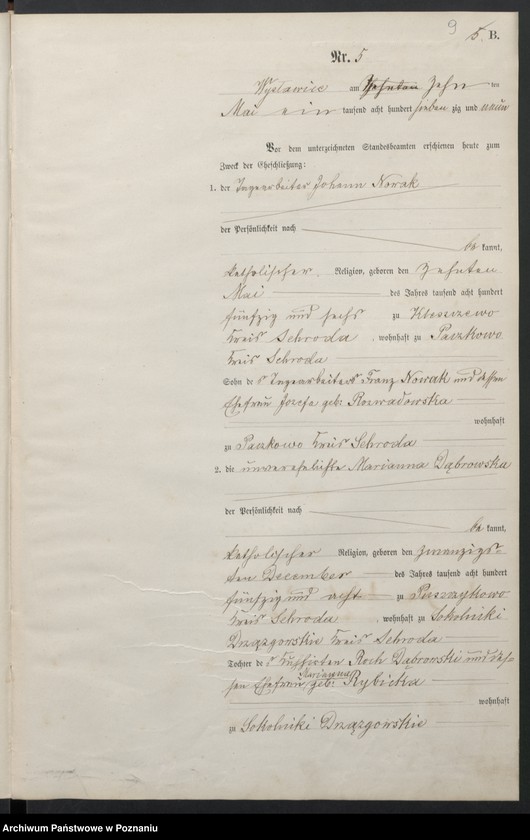 9
5. B.
Nr. 5
am Zehnten Zehn ten
Mai ein tausend acht hundert sieben zig und neun
Vor dem unterzeichneten Standesbeamten erschienen heute zum
Zweck der Eheschließung:
1. der Johann Nowak
der Persönlichkeit nach
be kannt,
katholischer Religion, geboren den zehnten
Mai des Jahres tausend acht hundert
fünfzig und sechs zu Kleszczewo
Kreis Schroda, wohnhaft zu Paczkowo
Kreis Schroda
Sohn des Franz Nowak und dessen
Ehefrau Jozefa geb. Rozwadowska
wohnhaft
zu Paczkowo Kreis Schroda
2. die unverehelichte Marianna Dąbrowska
der Persönlichkeit nach
be kannt,
katholischer Religion, geboren den zwanzigs-
ten December des Jahres tausend acht hundert
fünfzig und acht zu
Kreis Schroda, wohnhaft zu Sokolniki
Drzązgowskie Kreis Schroda
Tochter des Roch Dąbrowski und des-
sen Ehefrau Marianna geb. Rybicka
wohnhaft
zu Sokolniki Drzązgowskie
Archiwum Państwowe w Poznaniu